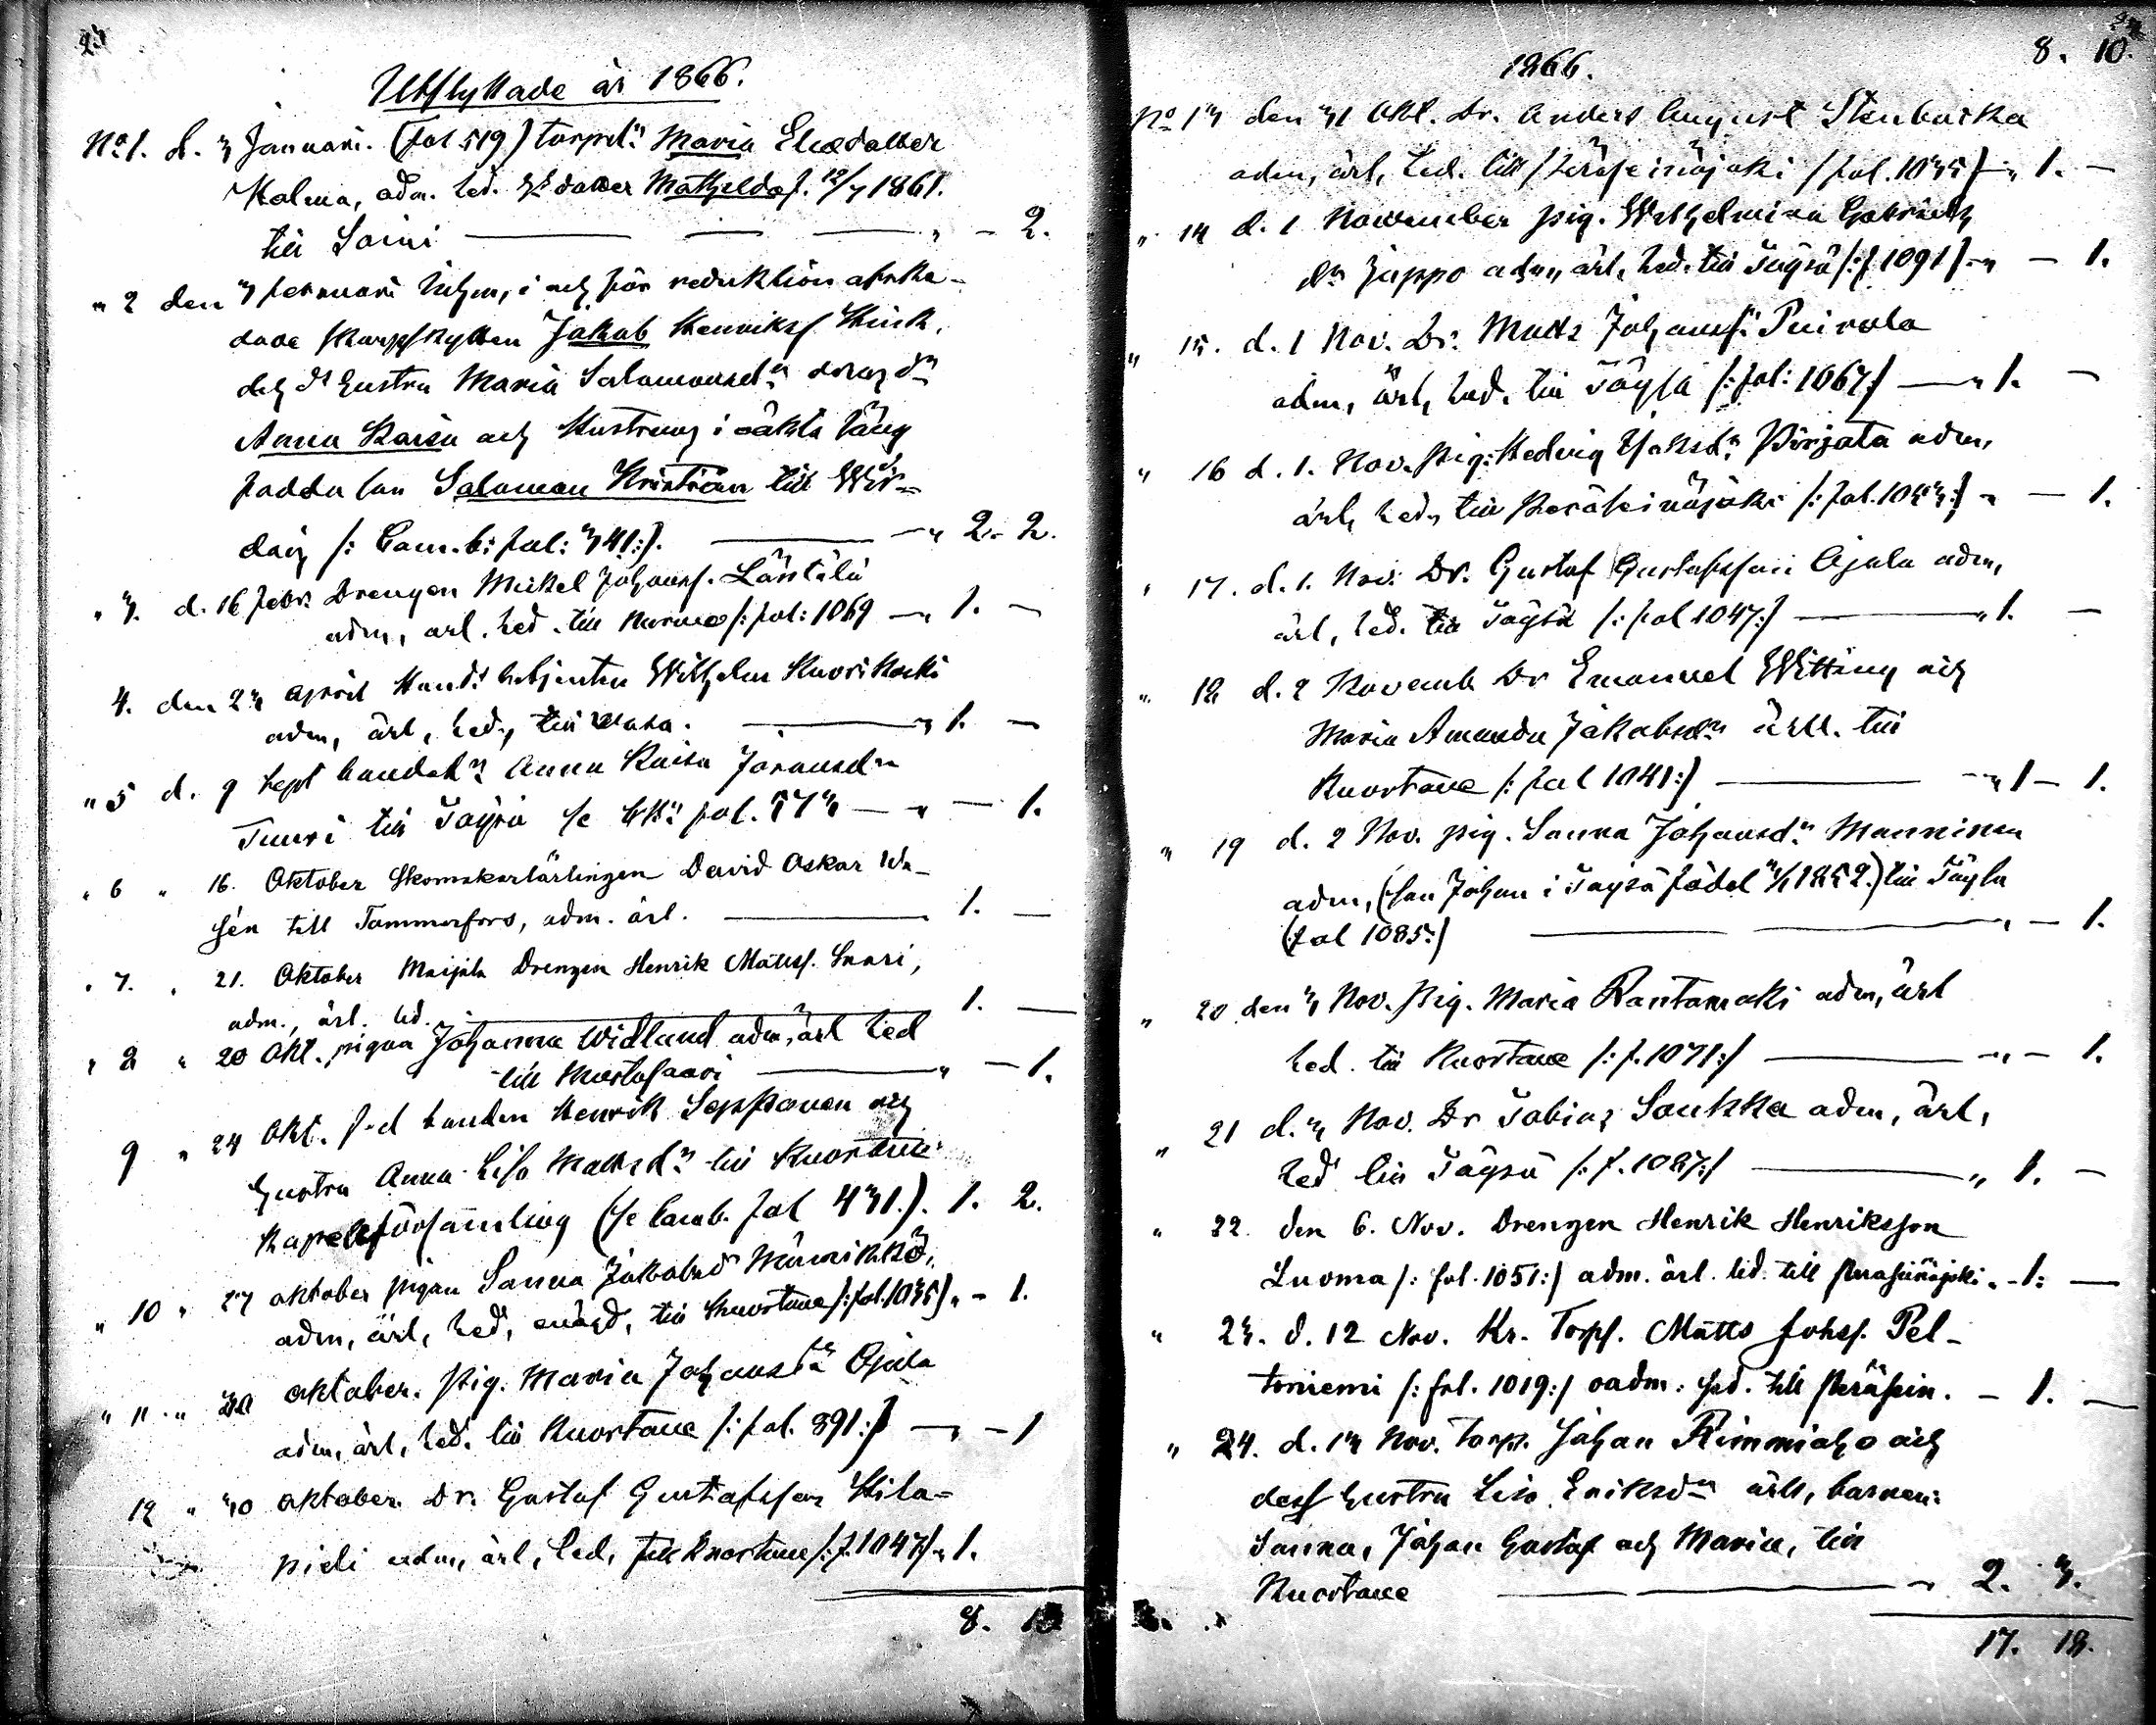 Utflyttade år 1866.
No 1. d. 3 Januari. (fol 519) torpdn Maria Eliædotter
Kalma, adm. led. dotter Mathilda f. 12/7 1861.
till Soini — — — " - 2.
" 2 den 3 februari i och för reduktion afske-
dade skarpskytten Jakob Henrikss.
och dss hustru Maria Salomonsdr
Anna Kaisa och hustruns i oäkta säng
födda son Salomon Kristian till Wir-
dois /: Comb: fol: 341:/. — " 2. 2.
" 3. d. 16 febr. Drengen Mickel Johanss. Läntälä
adm, ärl. led. till Nurmo /: fol: 1069 — " 1. —
4. den 23 April Hand. betjenten Wilhelm Kuorikoski
adm, ärl, led, till Wasa. — " 1. —
" 5 d. 9 Sept Anna Kaisa
Tuuri till Töysä se fol. 573 — " — 1.
" 6 " 16. Oktober Skomakarlärlingen David Oskar Wa-
sén till Tammerfors, adm. ärl. — 1. —
" 7. " 21. Oktober Drengen Henrik Mattss. Saari,
adm., ärl. led. — 1. —
" 8 " 20 Okt. pigan Johanna Widlund adm, ärl led
till Mustasaari — " — 1.
9 " 24 Okt. f.d. Henrik Seppänen och
hustru Anna Lisa Mattsdr till Kuortane
Kapellförsamling (se Comb. fol 431.). 1. 2.
" 10 " 27 oktober pigan Sanna Jakobsdr Männikkö,
adm, ärl, led, till Kuortane /: fol. 1035) " — 1.
" 11 " 30 oktober. Pig. Maria Johansdr Ojala
adm, ärl, led. till Kuortane /: fol. 891:/ — " — 1
12 " 30 oktober Dr. Gustaf Gustafsson Kila-
pidi adm, ärl, led, till Kuortane /: f. 1047:/ " 1.
8. 10
1866.
8. 10.
No 13 den 31 Okt. Dr. Anders August Stenbacka
adm, ärl, led. till Peräseinäjoki / fol. 1035) — " 1. —
" 14 d. 1 November pig. Wilhelmina Gabriels
dr Jappo adm, ärl, led. till Töysä /: f 1091) — " — 1.
" 15. d. 1 Nov. Dr. Matts Johanss: Puirola
adm, ärl, led. till Töysä /: fol: 1067:/ — " 1. —
" 16 d. 1. Nov. Pig: Hedvig Isaksdr Pirjata adm,
ärl, led, till Peräseinäjoki /: fol. 1053:/ " — 1.
" 17. d. 1. Nov. Dr. Gustaf Gustafsson Ojala adm,
ärl, led. till Töysä /: fol 1047:/ — " 1. —
" 18 d. 2 Novemb Dr Emanuel Witting och
Maria Amanda Jakobsdr ärll. till
Kuortane /: fol 1041:/ — " 1 — 1.
" 19 d. 2 Nov. pig. Sanna Johansdr Manninen
adm, (son Johan i Töysä född 1852.) till Töysä
(fol 1085:) — " — 1.
" 20 den 3 Nov. Pig. Maria Rantamäki adm, ärl
led. till Kuortane /: f. 1071:/ — " — 1.
" 21 d. 3 Nov. Dr Tobias Soukka adm, ärl,
led till Töysä /: f. 1087:/ — " 1. —
" 22. den 6. Nov. Drengen Henrik Henriksson
Luoma /: fol. 1051:/ adm. ärl. led. till Peräseinäjoki " - 1: —
" 23. d. 12 Nov. Kr. Torp. Matts Johss. Pel-
toniemi /: fol. 1019:/ oadm. led. till Peräsein. — 1. —
" 24. d. 13 Nov. Torp. Johan Rimmiaho och
dess hustru Lisa Eriksdr ärll, barnen:
Sanna, Johan Gustaf och Maria, till
Kuortane — — " 2. 3.
17. 18.